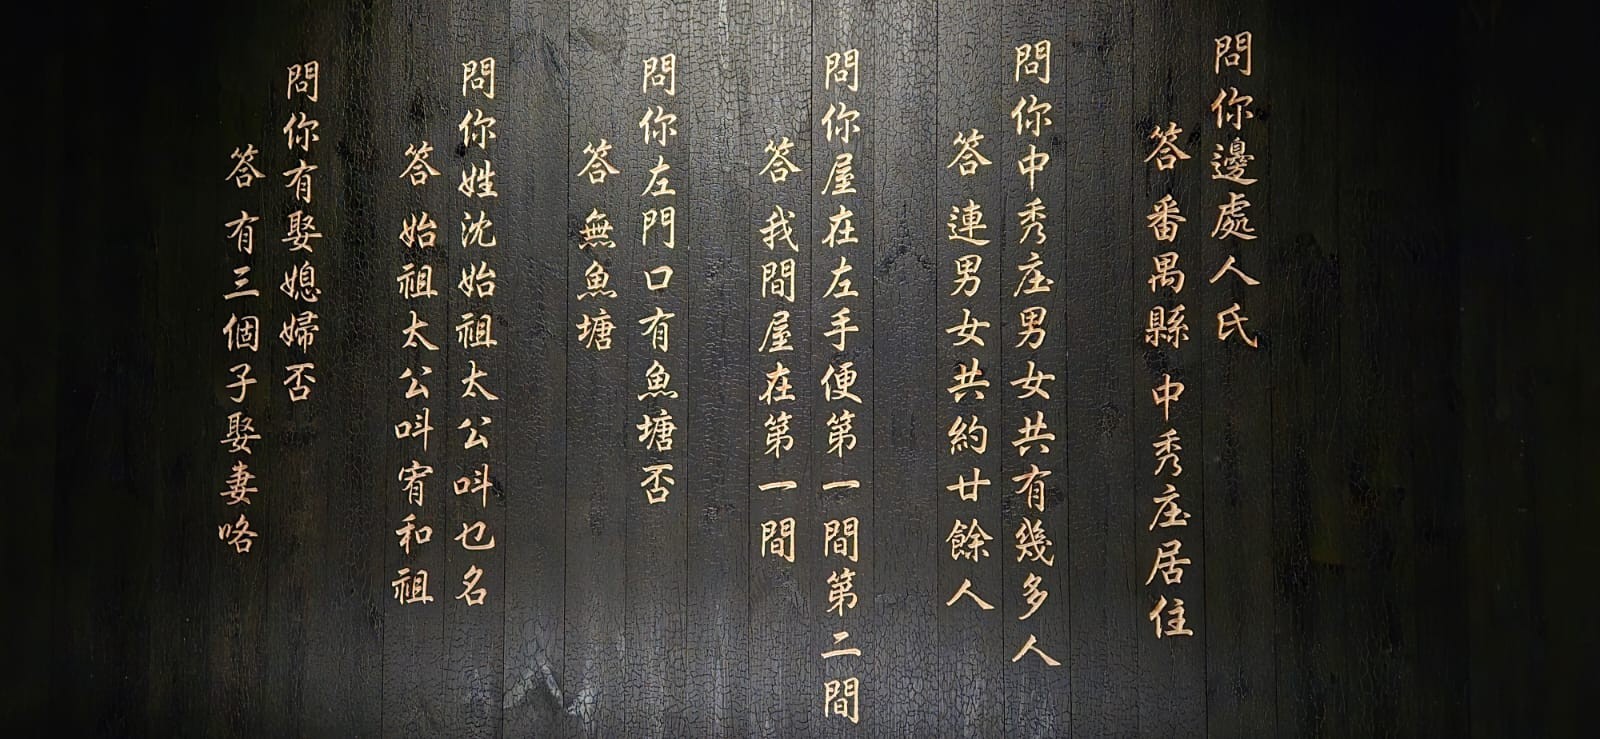 問你邊處人氏
答 番禺縣 中秀庄居住
問你中秀庄男女共有幾多人
答 連男女共約廿餘人
問你屋在左手便第一間第二間
答 我間屋在第一間
問你左門口有魚塘否
答 無魚塘
問你姓沈始祖太公叫乜名
答 始祖太公叫宥和祖
問你有娶媳婦否
答 有三個子娶妻咯